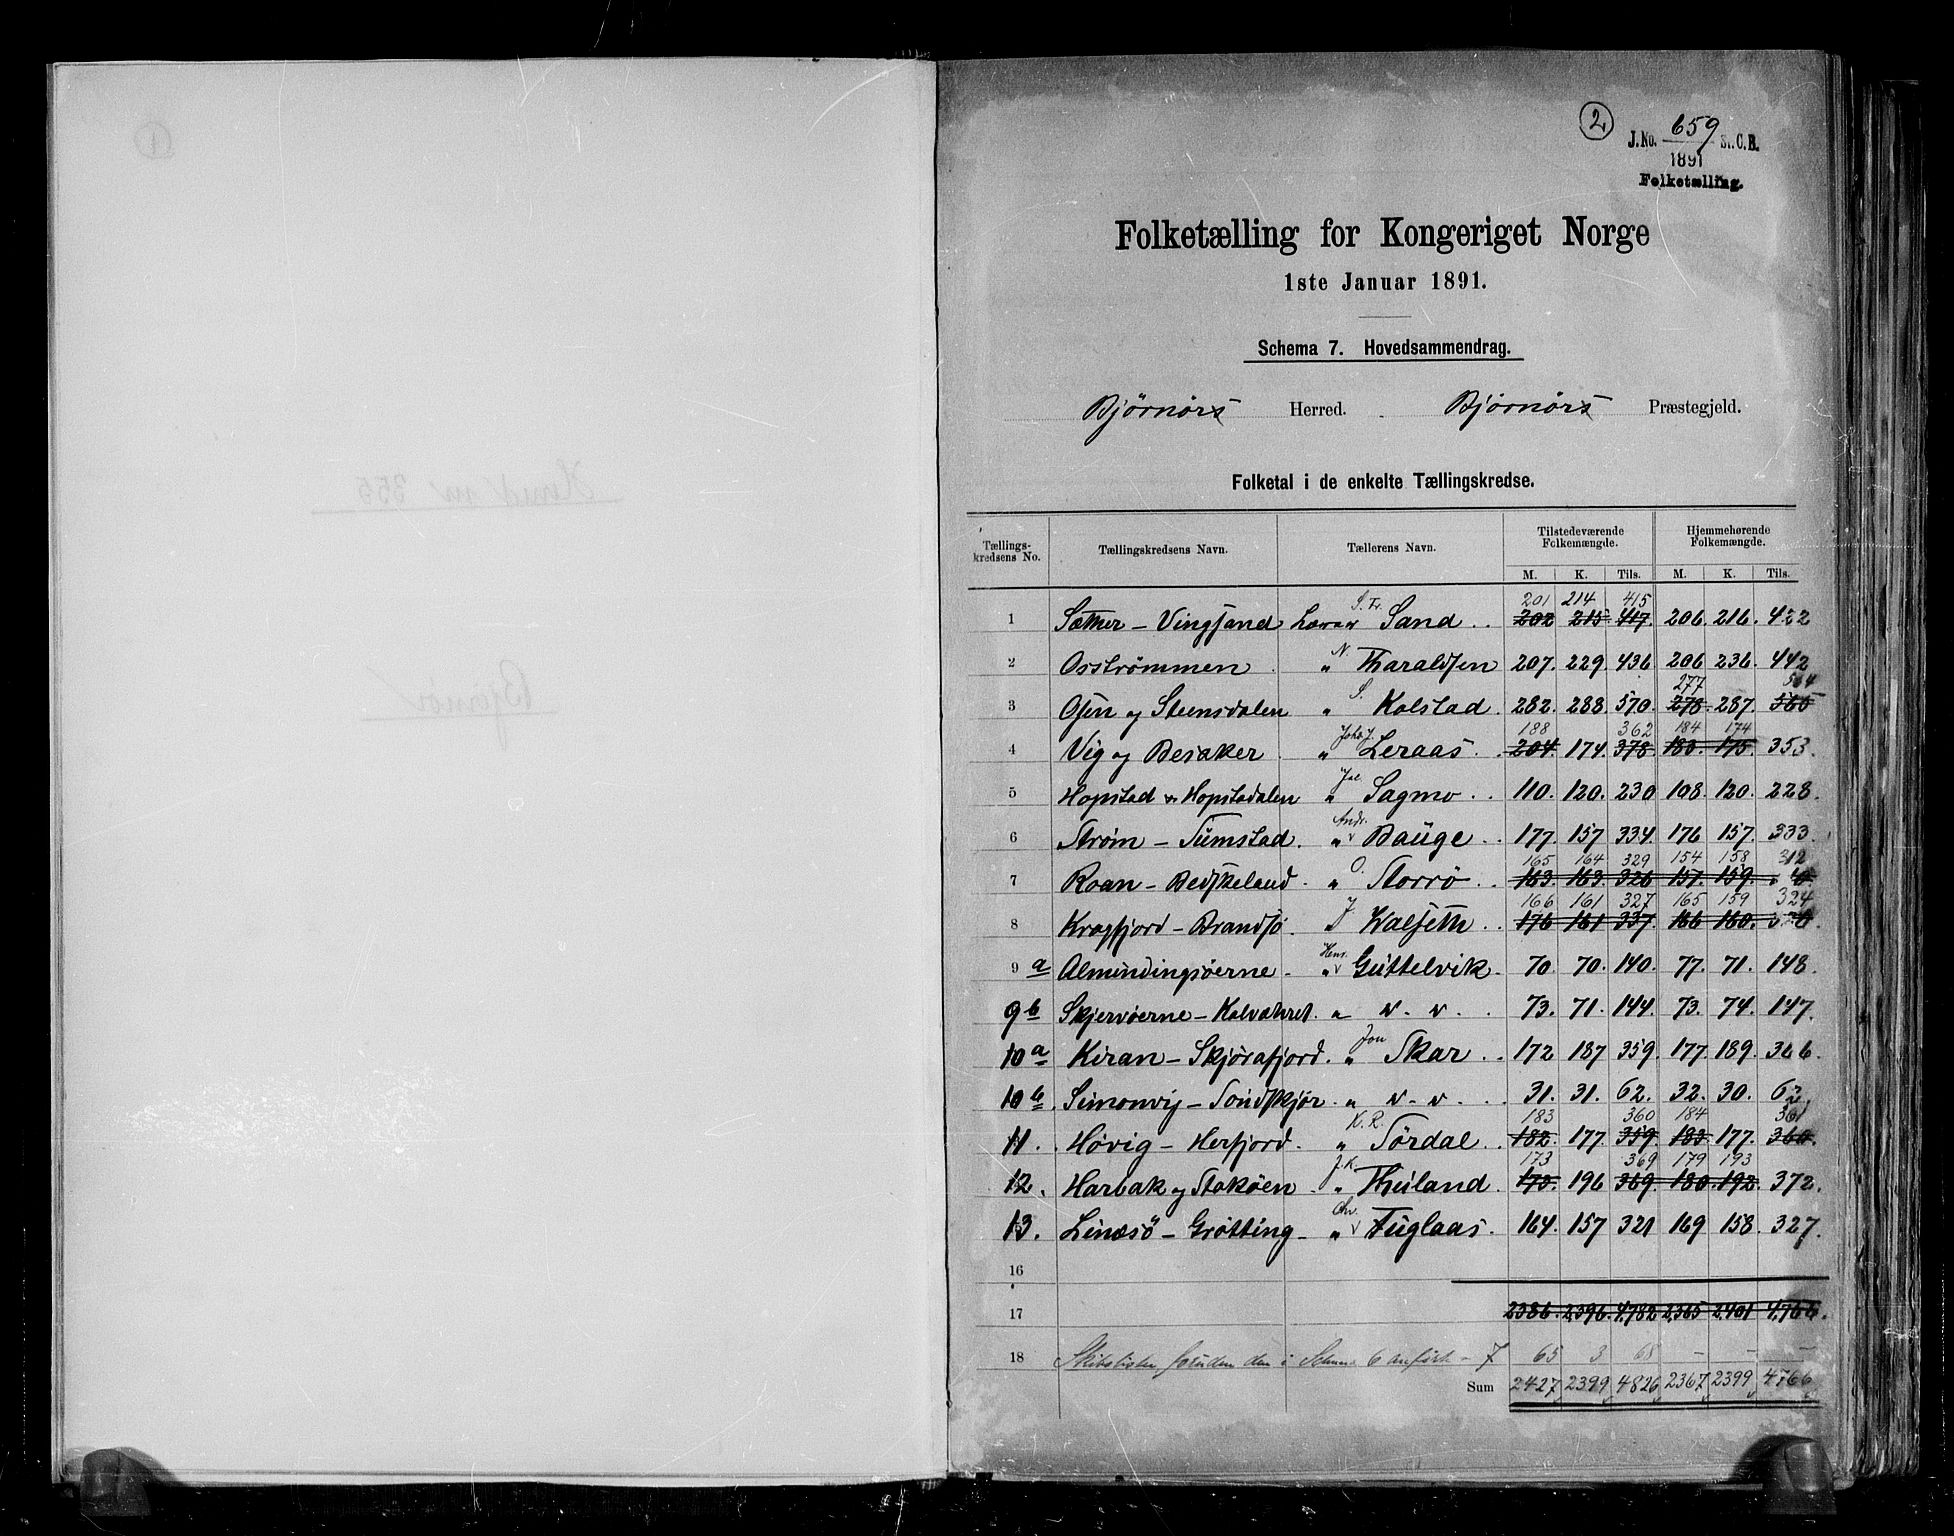 2
J.No. 659 St. C.B.
1891
Folketælling.
Folketælling for Kongeriget Norge
1ste Januar 1891.
Schema 7. Hovedsammendrag.
Bjørnørs Herred. Bjørnørs Præstegjeld.
Folketal i de enkelte Tællingskredse.
Tællings-kredsens No. Tællingskredsens Navn. Tællerens Navn. Tilstedeværende Folkemængde. Hjemmehørende Folkemængde.
M. K. Tils. M. K. Tils.
201 214 415
1 Sætter – Vingsand Lærer S. Fr. Sand 202 215 417 206 216 422
2 Osstrømmen „ N. Tharaldsen 207 229 436 206 236 442
277 564
3 Osen og Steinsdalen „ S. Kolstad 282 288 570 278 287 565
188 362 184 174
4 Vig og Besaker „ Johs J. Leraas 204 174 378 183 175 353
5 Hopstad Hopstadalen „ Sagmo 110 120 230 108 120 228
6 Strøm – Sumstad „ Andr. Bauge 177 157 334 176 157 333
165 164 329 154 158 312
7 Roan – Bedskeland „ O. Storrø 163 163 326 157 159
166 161 327 165 159 324
8 Kragfjord – Brandsø „ J. Walseth 176 161 337 166 160
9 a Almindingsøerne „ Hans Guttelvik 70 70 140 77 71 148
9 b Skjervøerne – Kalvæhret „ 73 71 144 73 74 147
10 a Kiran – Skjørafjord „ Jon Skar 172 187 359 177 189 366
10 b Simonvig – Sondskjør „ 31 31 62 32 30 62
183 360 184 361
11 Høvig – Herfjord „ K. R. Sørdal 182 177 359 183 177 360
173 369 179 193
12 Harbak og Stokøen „ J. K. Theiland 173 196 369 180 192 372
13 Linæsø – Grøtting „ Chr. Fuglaas 164 157 321 169 158 327
16
17 2386 2,396 4,782 2,365 2,401 4,766
18 Skibslister foruden den i Schema 6 anført – 7 65 3 68 – – –
Sum 2427 2399 4826 2367 2399 4766